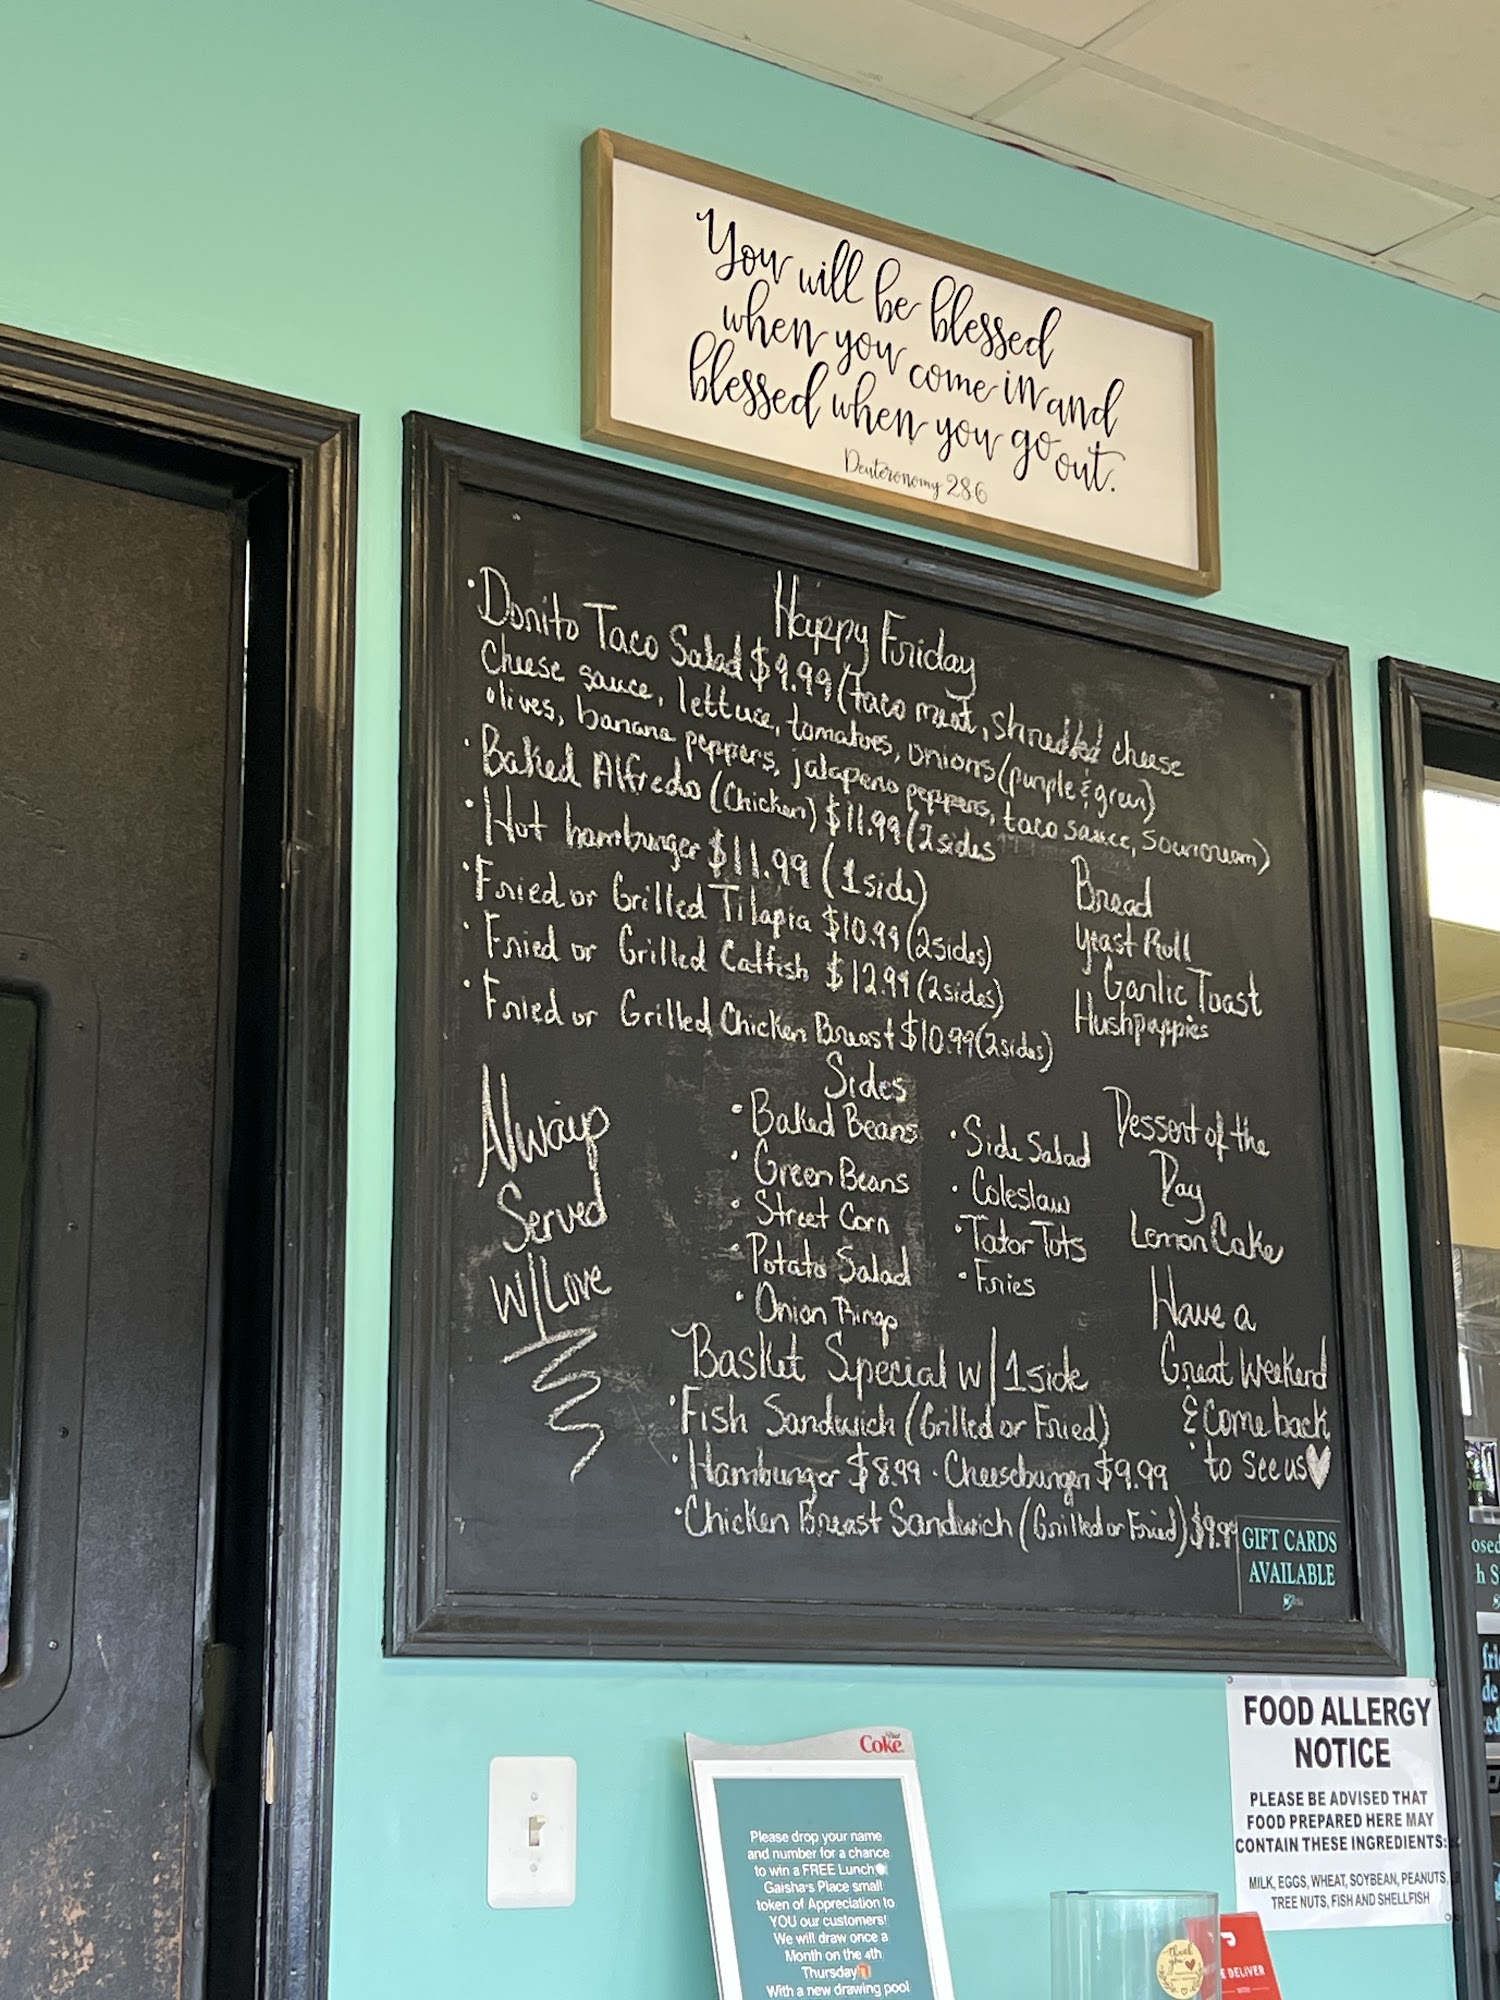 You will be blessed
when you come in and
blessed when you go out.
Deuteronomy 28:6
Happy Friday
• Dorito Taco Salad $9.99 (taco meat, shredded cheese
cheese sauce, lettuce, tomatoes, onions (purple & green)
olives, banana peppers, jalapeno peppers, taco sauce, sourcream)
• Baked Alfredo (Chicken) $11.99 (2 sides
• Hot hamburger $11.99 (1 side)
• Fried or Grilled Tilapia $10.99 (2 sides)
• Fried or Grilled Catfish $12.99 (2 sides)
• Fried or Grilled Chicken Breast $10.99 (2 sides)
Bread
Yeast Roll
Garlic Toast
Hushpuppies
Always
Served
w/Love
Sides
• Baked Beans
• Green Beans
• Street Corn
• Potato Salad
• Onion Rings
• Side Salad
• Coleslaw
• Tator Tots
• Fries
Dessert of the
Day
Lemon Cake
Have a
Great Weekend
& Come back
to see us
Basket Special w/ 1 side
• Fish Sandwich (Grilled or Fried)
• Hamburger $8.99 • Cheeseburger $9.99
• Chicken Breast Sandwich (Grilled or Fried) $9.99
GIFT CARDS
AVAILABLE
FOOD ALLERGY
NOTICE
PLEASE BE ADVISED THAT
FOOD PREPARED HERE MAY
CONTAIN THESE INGREDIENTS:
MILK, EGGS, WHEAT, SOYBEAN, PEANUTS,
TREE NUTS, FISH AND SHELLFISH
Diet
Coke
Please drop your name
and number for a chance
to win a FREE Lunch
Gaisha's Place small
token of Appreciation to
YOU our customers!
We will draw once a
Month on the 4th
Thursday
With a new drawing pool
thank
you
DELIVER